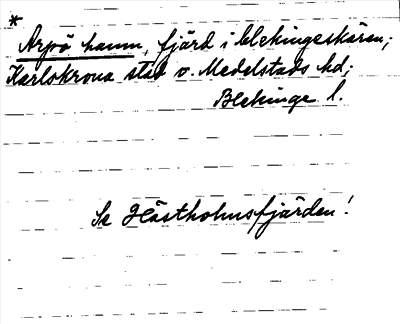 *
Arpö hamn, fjärd i Blekingeskären;
Karlskrona stad o. Medelstads hd;
Blekinge l.
Se Hästholmsfjärden!